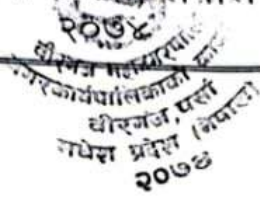 २०७४
वीरगंज महानगरपा
नगरकार्यपालिकाको
वीरगंज, पर्सा
मधेश प्रदेश (नेपाल)
२०७४